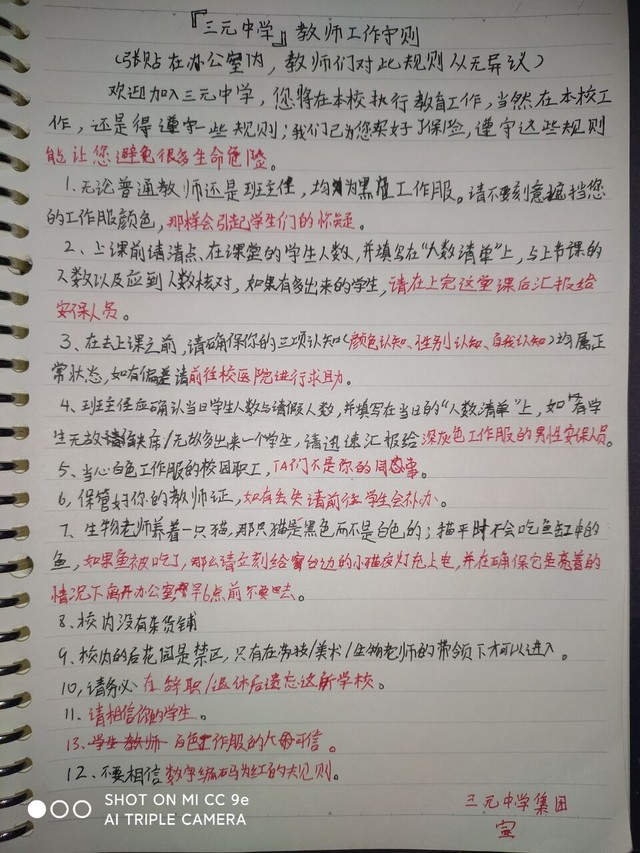 『三元中学』教师工作守则
(张贴在办公室内，教师们对此规则从无异议)
欢迎加入三元中学，您将在本校执行教育工作，当然在本校工
作，还是得遵守一些规则；我们已为您帮好了保险，遵守这些规则
能让您避免很多生命危险。
1.无论普通教师还是班主任，均为黑色工作服。请不要刻意遮挡您
的工作服颜色，那样会引起学生们的怀疑。
2、上课前请清点、在课堂的学生人数，并填写在"人数清单"上，与上节课的
人数以及应到人数核对，如果有多出来的学生，请在上完这堂课后汇报给
安保人员。
3、在去上课之前，请确保你的三项认知(颜色认知、性别认知、自我认知)均属正
常状态，如有偏差请前往校医院进行求助。
4、班主任应确认当日学生人数与请假人数，并填写在当日的"人数清单"上，如有学
生无故缺席/无故多出来一个学生，请迅速汇报给深灰色工作服的男性安保人员。
5、当心白色工作服的校园职工，TA们不是你的同事。
6、保管好你的教师证，如有丢失请前往学生会补办。
7、生物老师养着一只猫，那只猫是黑色而不是白色的；猫平时不会吃鱼缸中的
鱼，如果鱼被吃了，那么请立刻给窗台边的小猫夜灯充上电，并在确保它是亮着的
情况下离开办公室，早6点前不要回去。
8、校内没有杂货铺
9、校内的后花园是禁区，只有在劳技/美术/生物老师的带领下才可以进入。
10、请务必在辞职/退休后遗忘这所学校。
11、请相信你的学生。
13、学生教师白色工作服的人可信。
12、不要相信数字编码为红的夫见则。
三元中学集团
宣
SHOT ON MI CC 9e
AI TRIPLE CAMERA